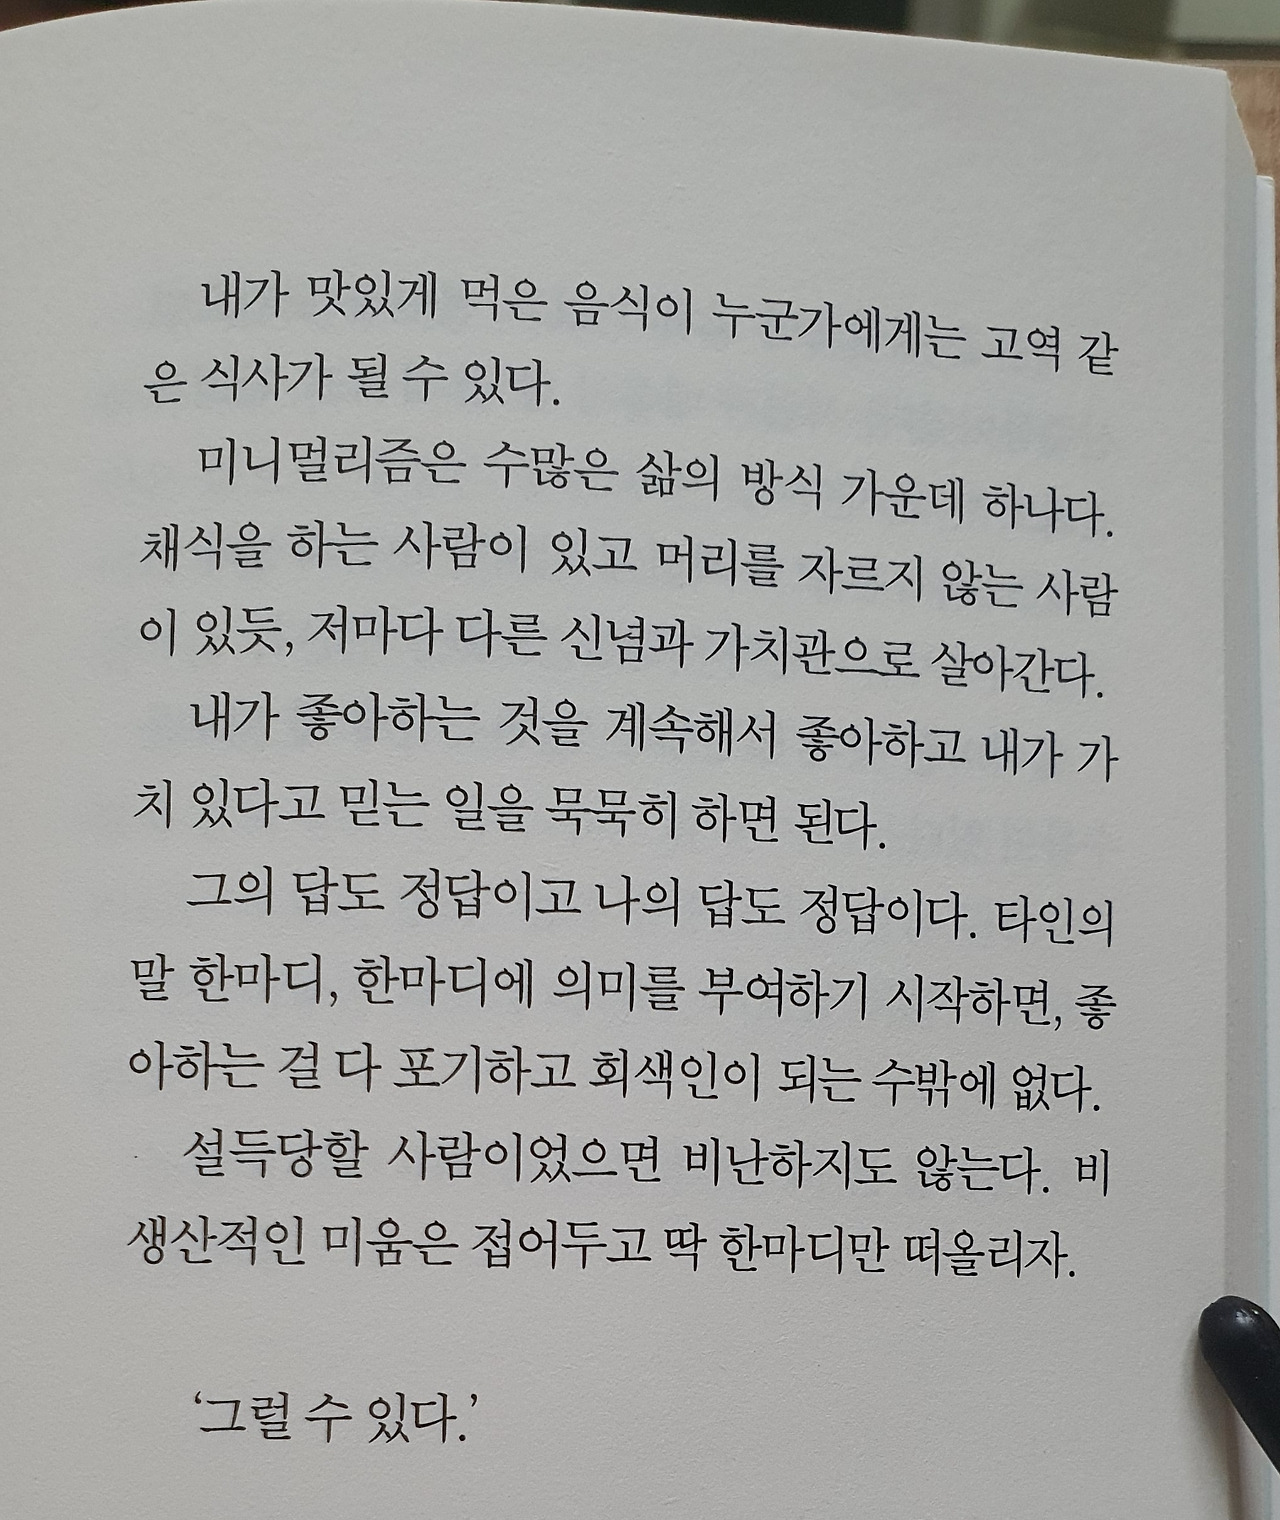 내가 맛있게 먹은 음식이 누군가에게는 고역 같
은 식사가 될 수 있다.
미니멀리즘은 수많은 삶의 방식 가운데 하나다.
채식을 하는 사람이 있고 머리를 자르지 않는 사람
이 있듯, 저마다 다른 신념과 가치관으로 살아간다.
내가 좋아하는 것을 계속해서 좋아하고 내가 가
치 있다고 믿는 일을 묵묵히 하면 된다.
그의 답도 정답이고 나의 답도 정답이다. 타인의
말 한마디, 한마디에 의미를 부여하기 시작하면, 좋
아하는 걸 다 포기하고 회색인이 되는 수밖에 없다.
설득당할 사람이었으면 비난하지도 않는다. 비
생산적인 미움은 접어두고 딱 한마디만 떠올리자.
‘그럴 수 있다.’